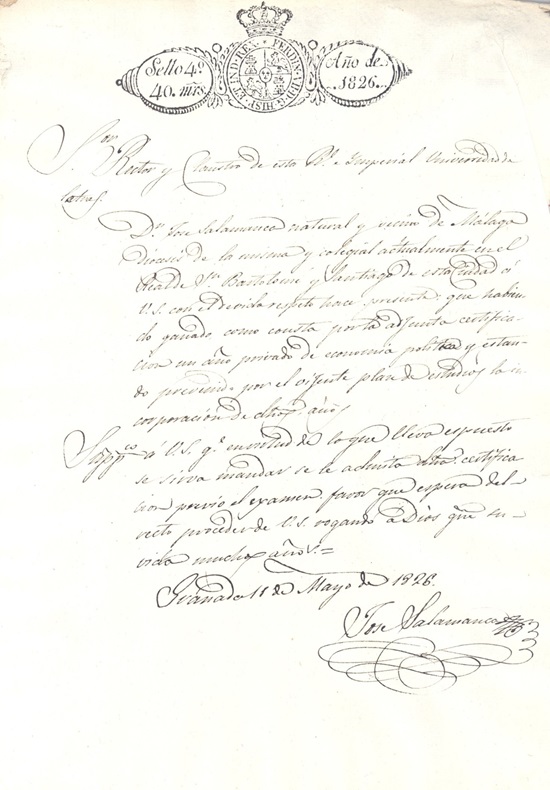 Sello 4º
40. mrs.
FERDIN. VII. D. G. HISP. ET IND. REX.
Año de.
1826.
Sor. Rector y Claustro de esta Rl. e Imperial Universidad de
letras.
Dn. Jose Salamanca natural y vecino de Málaga
diocesis de la misma y colegial actualmente en el
Rl. de Sn. Bartolomé y Santiago de esta Ciudad á
V.S. con el devido respeto hace presente: que habien-
do ganado como consta por la adjunta certifica-
cion un año privado de economia politica y estan-
do prevenido por el vijente plan de estudios la in-
corporación de dhos. años
Suppco. á V.S. q.e en virtud de lo que lleva espuesto
se sirva mandar se le admita dha. certifica
cion previo el examen, favor que espera del
recto proceder de V.S. rogando a Dios gue. su
vida muchos años.=
Granada 11 de Mayo de 1826.
Jose Salamanca